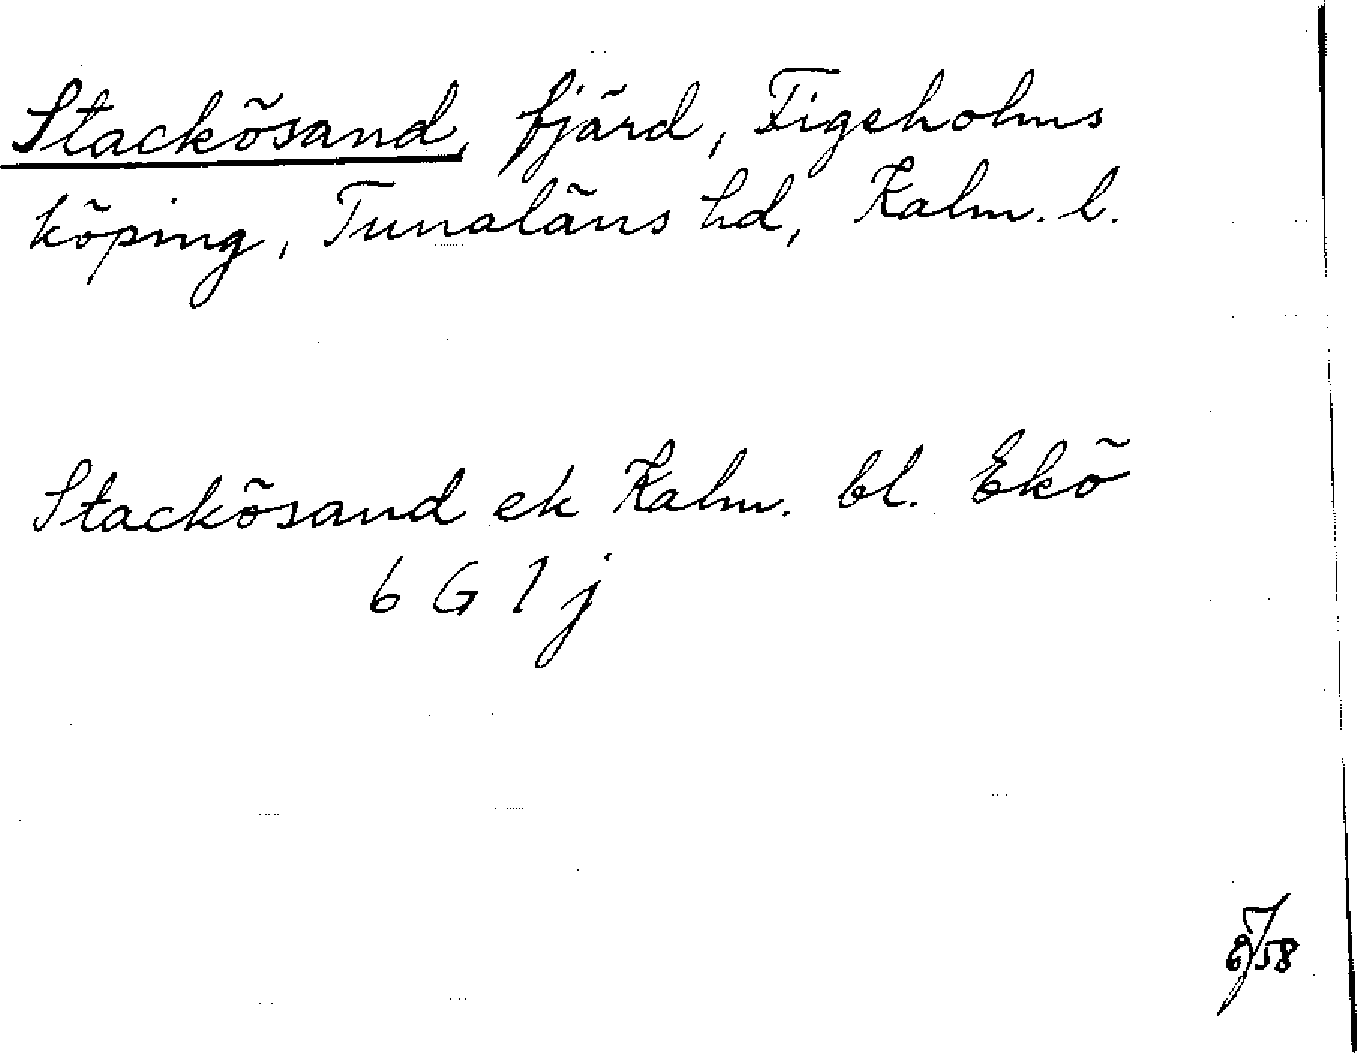 Stackösand, fjärd, Figeholms
köping, Tunaläns hd, Kalm. l.
Stackösand ek Kalm. bl. Ekö
6 G 1 j